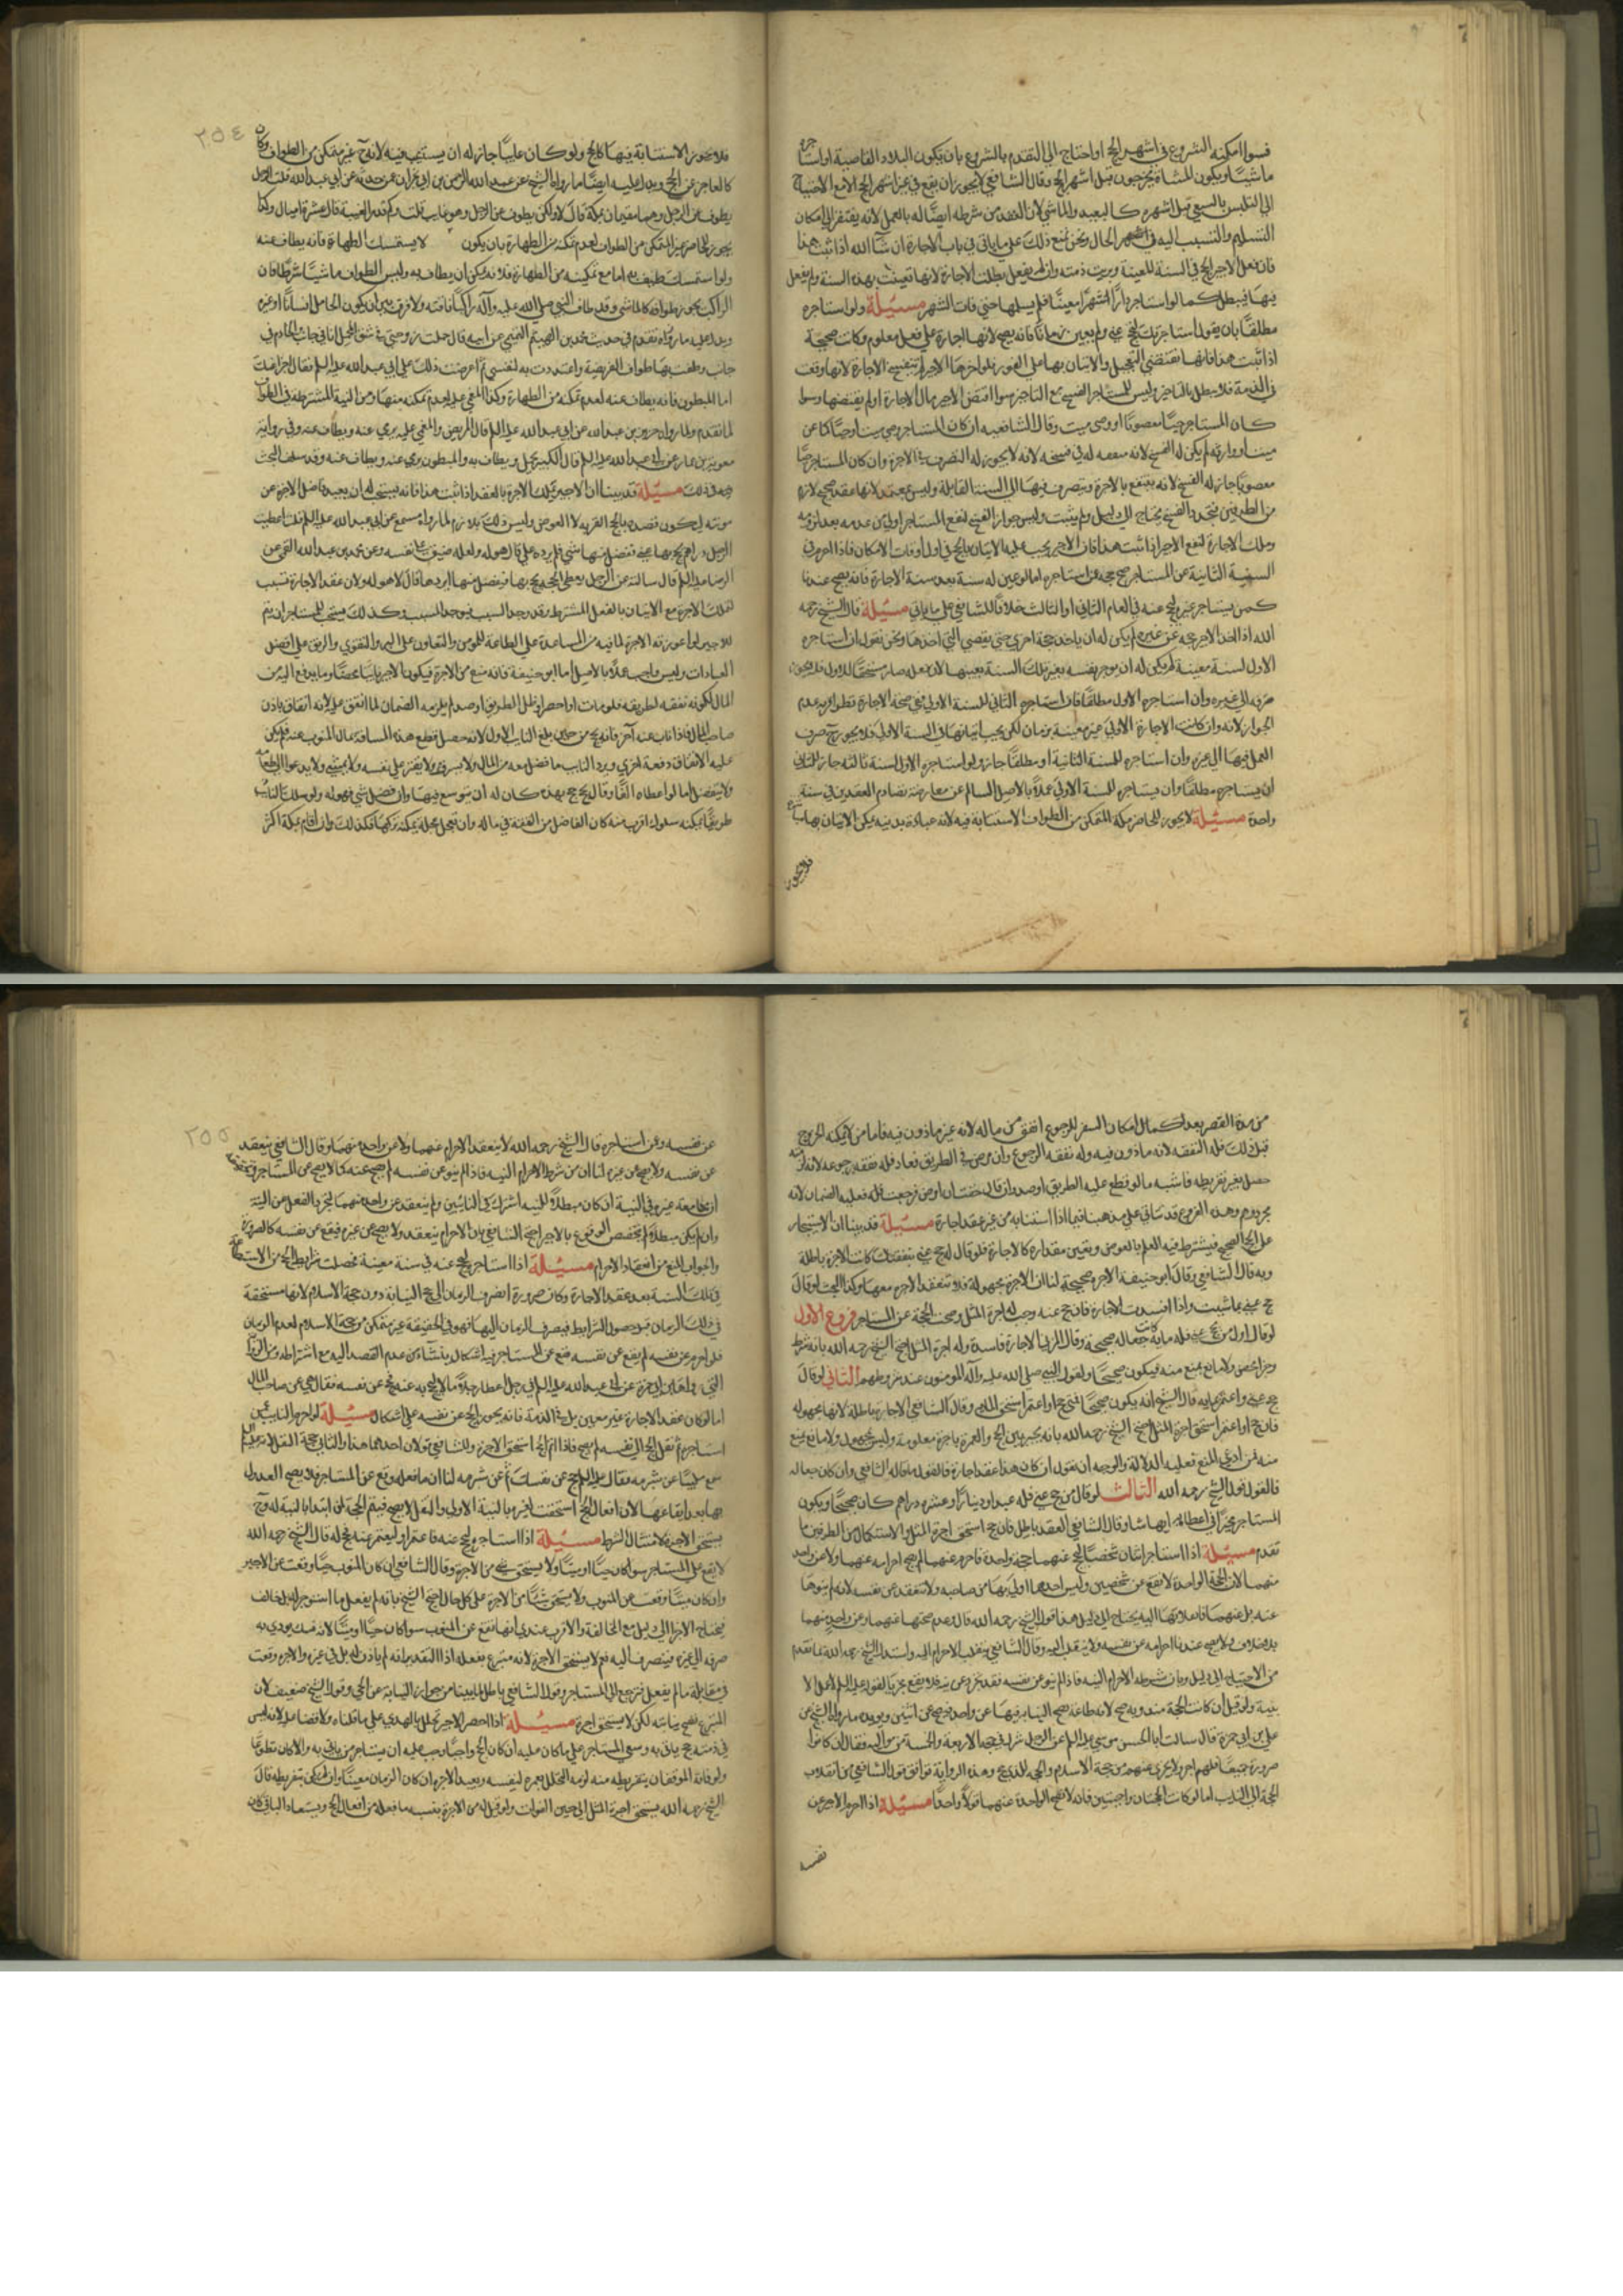 فسوا امكنه الشروع في اشهر الحج او احتاج الى التقدم بالشروع بان يكون البلاد القاصية او استاجره
ماشيا ويكون للمشاة يخرجون قبل اشهر الحج وقال الشافعي لا يجوز ان يقع في غير اشهر الحج الا مع الاحتياج
الى التلبس بالسعي قبل اشهره كالبعيد والماشي لان العقد من شرطه اتصاله بالعمل لانه يفتقر الى امكان
التسليم والتسبب اليه في الحال ونحن نمنع ذلك على ما ياتي في باب الاجارة ان شاء الله اذا ثبت هذا
فان فعل الاجير الحج في السنة المعينة وبريت ذمته وان لم يفعل بطلت الاجارة لانها تعينت بهذه السنة ولم يفعل
فيها فيبطل كما لو استاجر دارا شهرا معينا فلم يسلمها حتى فات الشهر مسئلة ولو استاجره
مطلقا بان يقول استاجرتك لتحج عني ولم يعين زمانا فانه يصح لانها اجارة على فعل معلوم وكانت صحيحة
اذا ثبت هذا فانها تقتضي التعجيل والاتيان بها على الفور فلو اخرها الاجير لم تنفسخ الاجارة لانها وقعت
في الذمة فلا تبطل بالتاخير وليس للمستاجر الفسخ مع التاخير سوا اقتض الاجير مال الاجارة او لم يقتضها وسوا
كان المستاجر حيا معضوبا او وصي ميت وقال الشافعية ان كان المستاجر وصي ميت او حيا كما عن
ميت او وارثه لم يكن له الفسخ لانه منفعه له في فسخه لانه لا يجوز له التصرف في الاجرة وان كان المستاجر حيا
معضوبا جاز له الفسخ لانه ينتفع بالاجرة ويتصرف فيها الى السنة القابلة وليس بمعتمد لانها عقد صحيح لازم
من الطرفين فتجدد الفسخ يحتاج الى دليل ولم يثبت وليس جواز الفسخ لنفع المستاجر اولى من عدمه بعد لزومه
وملك الاجارة لنفع الاجير اذا ثبت هذا فان الاجير يجب عليه الاتيان بالحج في اول اوقات الامكان فاذا احرم في
السنة الثانية عن المستاجر صح حجه عمن استاجره اما لو عين له سنة بعد سنة الاجارة فانه يصح عندنا
كمن يستاجر غيره ليحج عنه في العام الثاني او الثالث خلافا للشافعي على ما ياتي مسئلة قال الشيخ رحمه
الله اذا اخذ الاجير حجة عن غيره لم يكن له ان ياخذ حجة اخرى حتى يقضي التي اخذها ونحن نقول ان استاجره
الاول لسنة معينة لم يكن له ان يوجر نفسه بغير تلك السنة بعينها لان فعله صار مستحقا للاول فلا يجوز
صرفه الى غيره وان استاجره الاول مطلقا فان استاجره الثاني للسنة الاولى ففي صحة الاجارة نظر اقربه عدم
الجواز لانه وان كانت الاجارة الاولى غير معينة بزمان لكن يجب اتيانها في السنة الاولى فلا يجوز صرف
العمل فيها الى غيره وان استاجره للسنة الثانية او مطلقا جاز ولو استاجره الاول لسنة ثالثه جاز للثاني
ان يستاجره مطلقا وان يستاجره للسنة الاولى عملا بالاصل السالم عن معارضة تصادم العقدين في سنة
واحدة مسئلة لا يجوز للحاضر بمكة المتمكن من الطواف الاستنابة فيه لانه عبادة بدنيه يمكن الاتيان بها مباشرة
فلا يجوز
٢٥٤
فلا يجوز الاستنابة فيها كالحج ولو كان غايبا جاز له ان يستنيب فيه لانه ح غير متمكن من الطواف وكان
كالعاجز عن الحج ويدل عليه ايضا ما رواه الشيخ عن عبد الرحمن بن ابي نجران عمن حدثه عن ابي عبد الله قلت الرجل
يطوف عن الرجل وهما مقيمان بمكة قال لا ولكن يطوف عن الرجل وهو غايب قلت وكم قدر الغيبة قال عشرة اميال وكذا
يجوز للحاضر غير المتمكن من الطواف لعدم تمكنه من الطهارة بان يكون لا يستمسك الطهارة فانه يطاف عنه
ولو استمسك طيف به اما مع تمكينه من الطهارة فلانه يمكن ان يطاف به وليس الطواف ماشيا شرطا فان
الراكب يجوز طوافه كالماشي وقد طاف النبي صلى الله عليه وآله راكبا ناقته ولا فرق بين ان يكون الحامل انسانا او غيره
ويدل عليه ما رواه تقدم في حديث محمد بن الهيثم التميمي عن ابيه قال حملت زوجتي في شق المحمل انا في جانب والخادم في
جانب وطفت بها طواف الفريضة واعتددت به لنفسي ثم عرضت ذلك على ابي عبد الله عليه السلم فقال اجزا عنك
اما المبطون فانه يطاف عنه لعدم تمكنه من الطهارة وكذا المغمى عليه لعدم تمكنه منها ومن النية المشترطة في الطواف
لما تقدم ولما رواه حريز بن عبد الله عن ابي عبد الله عليه السلم قال المريض والمغمى عليه يرمى عنه ويطاف عنه وفي رواية
معوية بن عمار عن ابي عبد الله عليه السلم قال الكبير يحمل ويطاف به والمبطون يرمى عنه ويطاف عنه وقد سلف البحث
في ذلك مسئلة قد بينا ان الاجير يملك الاجرة بالعقد اذا ثبت هذا فانه يستحب له ان يعيد فاضل الاجرة عن
مونته ليكون قصده بالحج القربه لا العوض وليس ذلك بلازم لما رواه مسمع عن ابي عبد الله عليه السلم قلت اعطيت
الرجل دراهم يحج بها عني ففضل منها شي فلم يرده علي قال هو له ولعله ضيق على نفسه وعن محمد بن عبد الله القمي عن
الرضا عليه السلم قال سالته عن الرجل يعطى الحجة يحج بها فيفضل منها ايردها قال لا هو له ولان عقد الاجارة سبب
لتملك الاجرة مع الاتيان بالفعل المشترط وقد وجد السبب فيوجد المسبب وكذلك يستحب للمستاجر ان يتم
للاجير لو اعوزته الاجرة لما فيه من المساعدة على الطاعة للمومن والتعاون على البر والتقوى والرفق على افضل
العبادات وليس واجب عملا بالاصل اما ابو حنيفة فانه منع من الاجرة فيكون الاجير نايبا محضا وما يدفع اليه من
المال يكون نفقه لطريقه فلو مات او احصر او ظل الطريق او صد لم يلزمه الضمان لما انفق عليه لانه انفاق باذن
صاحب المال فاذا ناب عنه آخر فانه يحج من حيث بلغ النايب الاول لانه حصل قطع هذه المسافة بمال المنوب عنه فلم يكن
عليه الانفاق دفعة اخرى ويرد النايب ما فضل معه من المال ولا يسرف ولا يقتر على نفسه ولا يمشي ولا يدعو الى طعامه
ولا يتفضل اما لو اعطاه الفا وقال حج بهذه كان له ان يتوسع فيها وان فضل شي فهو له ولو سلك النايب
طريقا يمكنه سلوك اقرب منه كان الفاضل من النفقة في ماله وان تعجل عجلة يمكنه تركها فكذلك وان اقام بمكة اكثر
من مدة القصر بعد كمال امكان السفر للرجوع انفق من ماله لانه غير ماذون فيه فاما من لا يمكنه الخروج
قبل ذلك فله النفقه لانه ماذون فيه وله نفقه الرجوع وان مرض في الطريق فعاد فله نفقه رجوعه لانه
حصل بغير تفريطه فاشبه ما لو قطع عليه الطريق او صد وان قال خفت ان امرض فرجعت فعليه الضمان لانه
متوهم وهذه الفروع قد تتاتى على مذهبنا فيما اذا استنابه من غير عقد اجارة مسئلة قد بينا ان الاستيجار
على الحج الصحيح فيشترط فيه العلم بالعوض وتعيين مقداره كالاجارة فلو قال له حج عني بنفقتك كانت الاجرة باطلة
وبه قال الشافعي وقال ابو حنيفة الاجرة صحيحة لنا ان الاجرة مجهولة فلا ينعقد الاجرة معها وكذا البحث لو قال
حج عني بما شيت واذا افسدت الاجارة فان حج عنه وجب له اجرة المثل وصحت الحجة عن المستاجر فروع الاول
لو قال اول من يحج عني فله مائة كانت جعالة صحيحة وقال المزني الاجارة فاسدة وله اجرة المثل احتج الشيخ رحمه الله بانه شرط
وجزا محض ولا مانع يمنع منه فيكون صحيحا ولقول النبي صلى الله عليه وآله المومنون عند شروطهم الثاني لو قال
حج عني واعتمر بمايه قال الشيخ انه يكون صحيحا فمتى حج او اعتمر استحق المايه وقال الشافعي الاجارة باطلة لانها مجهوله
فان حج او اعتمر استحق اجرة المثل احتج الشيخ رحمه الله بانه يخير بين الحج والعمرة باجرة معلومة وليس مجهول ولا مانع يمنع
منه فمن ادعى المنع فعليه الدلالة والوجه ان نقول ان كان هذا عقد اجارة فالقول ما قاله الشافعي وان كان جعاله
فالقول قول الشيخ رحمه الله الثالث لو قال من حج عني فله عبد او دينار او عشره دراهم كان صحيحا ويكون
المستاجر مخيرا في اعطائه ايها شا وقال الشافعي العقد باطل فان حج استحق اجرة المثل والاستكمال من الطرفين ما
تقدم مسئلة اذا استاجر اثنان شخصا ليحج عنهما حجة واحدة فاحرم عنهما لم يصح احرامه عنهما ولا عن واحد
منهما لان الحجة الواحدة لا تقع عن شخصين وليس احدهما اولى بها من صاحبه ولا تنعقد عن نفسه لانه لم ينوها
عنه بل عنهما فانقلابها اليه يحتاج الى دليل هذا قول الشيخ رحمه الله قال وعدم صحتها عنهما وعن واحد منهما
بلا خلاف ولا يصح عندنا احرامه عن نفسه ولا ينقلب اليه وقال الشافعي ينقلب الاحرام اليه واستدل الشيخ رحمه الله بما تقدم
من الاحتياج الى دليل وبان شرط الاحرام النيه فاذا لم ينو عن نفسه فقد تجرد عن نية فلا يقع مجزيا لقوله عليه السلم لا عمل الا
بنية ولو قيل ان كانت الحجة مندوبه صح لانه طاعة تصح النيابة فيها عن واحد فتصح عن اثنين ويويده ما رواه الشيخ عن
علي بن ابي حمزة قال سالت ابا الحسن موسى عليه السلم عن الرجل يشرك في حجته الاربعة والخمسة من مواليه فقال ان كانوا
صرورة جميعا فلهم اجر ولا يجزي عنهم من حجة الاسلام والحجة للذي حج وهذه الرواية توافق قول الشافعي من انقلاب
الحجة الى النايب اما لو كانت الحجتان واجبتين فانه لا تقع الواحدة عنهما قولا واحدا مسئلة اذا احرم الاجير عن
نفسه
٢٥٥
عن نفسه وعن استاجره قال الشيخ رحمه الله لا ينعقد الاحرام عنهما ولا عن واحد منهما وقال الشافعي ينعقد
عن نفسه ولا يصح عن غيره لنا ان من شرط الاحرام النيه فاذا لم ينو عن نفسه لم يصح عنه كما لا يصح عن المستاجر
معه غيره في النية ان كان مبطلا للنيه اشتركت في النايبين ولم ينعقد عن واحد منهما لتجرد الفعل من النية
وان لم يكن مبطلا لم يختص الوقوع بالاجير احتج الشافعي بان الاحرام ينعقد ولا يصح عن غيره فيقع عن نفسه كالصرورة
والجواب المنع من انعقاد الاحرام مسئلة اذا استاجره ليحج عنه في سنة معينة فحصلت شرايط الحج من الاستطاعة
في تلك السنة بعد عقد الاجارة وكان صرورة انصرف الزمان الى حج النيابة دون حجة الاسلام لانها مستحقة
في ذلك الزمان قبل حصول الشرايط فيصرف الزمان اليها فهو في الحقيقة غير متمكن من حجة الاسلام لعدم الزمان
فلو احرم عن نفسه لم يقع عن نفسه فيقع عن المستاجر فيه اشكال ينشا من عدم القصد اليه مع اشتراطه ومن الرواية
التي رواها ابن ابي حمزة عن ابي عبد الله عليه السلم في رجل اعطاه رجل مالا ليحج به عنه فحج عن نفسه فقال هي عن صاحب المال
اما لو كان عقد الاجارة غير معين بل في الذمة فانه يجوز الحج عن نفسه على اشكال مسئلة لو احرم النايب عمن
استاجره ثم نقل الحج الى نفسه لم يصح فاذا اتم الحج استحق الاجرة وللشافعي قولان احدهما هذا والثاني حجة النقل لانه عليه السلم
سمع ملبيا عن شبرمه فقال عليه السلم حج عن نفسك ثم عن شبرمه لنا ان ما فعله وقع عن المستاجر فلا يصح العدول
بها بعد ايقاعها لان افعال الحج استحقت لغيره بالنية الاولى والنقل لا يصح فيتم الحجة لمن ابتدا بالنية له وح
يستحق الاجرة لامتثال الشرط مسئلة اذا استاجره ليحج عنه فاعتمر او ليعتمر عنه فحج له قال الشيخ رحمه الله
لا يقع عن المستاجر سوا كان حيا او ميتا ولا يستحق شي من الاجرة وقال الشافعي ان كان المنوب حيا وقعت عن الاجير
وان كان ميتا وقعت عن المنوب ولا يستحق شيئا من الاجرة على كل حال احتج الشيخ بانه لم يفعل ما استوجر له بل خالف
فيحتاج الاجزا الى دليل مع المخالفة والاقرب عندي انها تقع عن المنوب سوا كان حيا او ميتا لانه نسك يودي به
صرفه الى غيره فينصرف اليه نعم لا يستحق الاجرة لانه متبرع بفعله اذ التقدير انه لم ياذن له بل في غيره والاجره وقعت
في مقابلة ما لم يفعل فترجع الى المستاجر وقول الشافعي باطل لما بينا من جواز النيابة عن الحي وقول الشيخ ضعيف لان
المتبرع تصح نيابته لكن لا يستحق اجرة مسئلة اذا احصر الاجير تحلل بالهدي على ما قلناه ولا قضا عليه لانه ليس
في ذمته حج ياتي به وسعي المستاجر على ما كان عليه ان كان الحج واجبا وجب عليه ان يستاجر من ياتي به والا كان تطوعا
ولو فاته الموقفان بتفريطه منه لزمه التحلل بعمره لنفسه ويعيد الاجره ان كان الزمان معينا وان لم يكن بتفريطه قال
الشيخ رحمه الله يستحق اجرة المثل الى حين الفوات ولو قيل له من الاجرة بنسبه ما فعله من افعال الحج ويستعاد الباقي كان